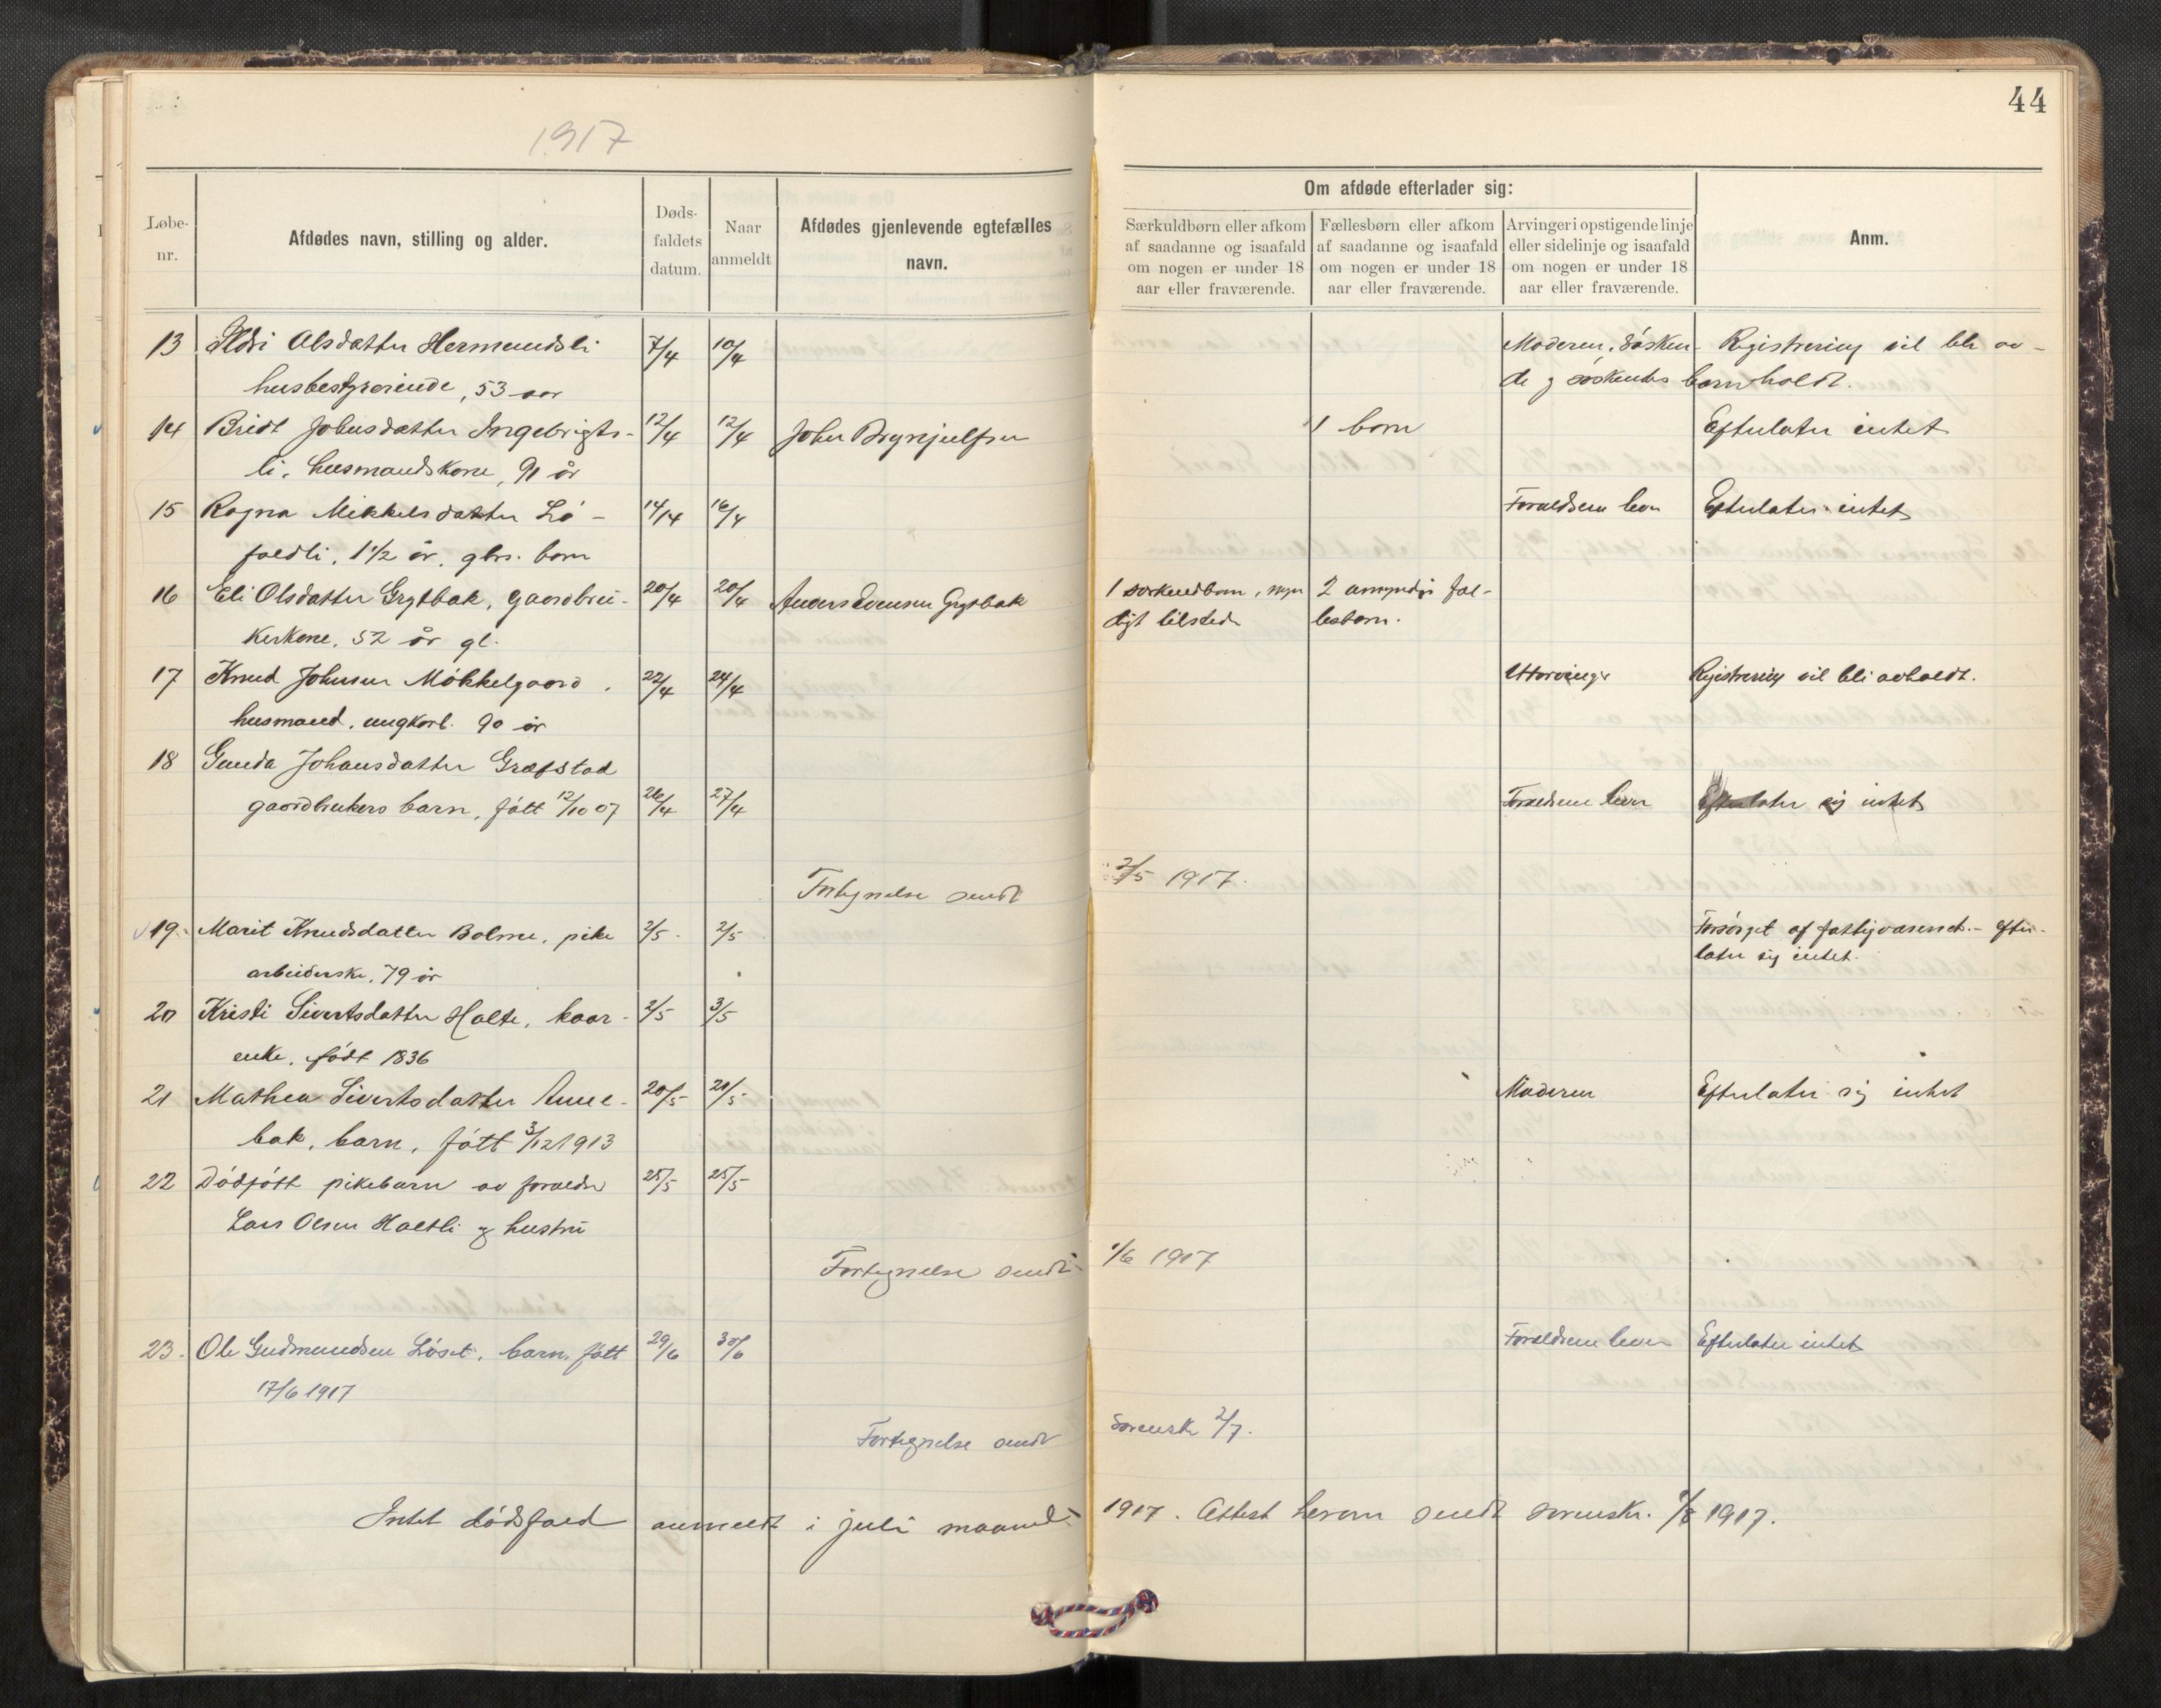 44
1917
Løbe-
nr.
Afdødes navn, stilling og alder.
Døds-
faldets
datum.
Naar
anmeldt
Afdødes gjenlevende egtefælles
navn.
Om afdøde efterlader sig:
Særkuldbørn eller afkom
af saadanne og isaafald
om nogen er under 18
aar eller fraværende.
Fællesbørn eller afkom
af saadanne og isaafald
om nogen er under 18
aar eller fraværende.
Arvinger i opstigende linje
eller sidelinje og isaafald
om nogen er under 18
aar eller fraværende.
Anm.
13 Ildri Olsdatter Hermundsli 7/4 10/4 Moderen, søsken- Registrering vil bli av-
husbestyrerinde, 53 aar de og søskendes barn holdt.
14 Bridt Johnsdatter Ingebrigts- 12/4 12/4 John Brynjulfsen 1 barn Efterlater intet
li, husmandskone, 91 år
15 Ragna Mikkelsdatter Lø- 14/14 16/4 Forældrene lever Efterlater intet
foldli, 1 1/2 år, gbrs. barn
16 Eli Olsdatter Grytbak, gaardbru- 20/4 20/4 Anders Evensen Grytbak 1 særkuldbarn, myn 2 umyndige fæl-
kerkone, 52 år gl. digt tilstede lesbarn.
17 Knud Johnsen Møkkelgaard, 22/4 24/4 Utarvinger Registrering vil bli avholdt.
husmand, ungkarl. 90 år
18 Gunda Johansdatter Græfstad
gaardbrukers barn, født 12/10 07 26/4 27/4 Forældrene lever Efterlater sig intet
Fortegnelse sendt 2/5 1917.
19. Marit Knudsdatter Bolme, pike 2/5. 2/5 Forsørget af fattigvæsenet.- Efter-
arbeiderske, 79 år later sig intet.
20 Kristi Sivertsdatter Holte, kaar- 2/5 3/5
enke, født 1836
21 Mathea Sivertsdatter Aune- 20/5 21/5 Moderen Efterlater sig intet
bak, barn, født 3/12 1913
22 Dødfødt pikebarn av forældre 25/5 25/5
Lars Olsen Holtli og hustru
Fortegnelse sendt 1/6 1917
23. Ole Gudmundsen Løset, barn, født 29/6 30/6 Forældrene lever Efterlater intet
17/6 1917
Fortegnelse sendt Sorensk 2/7.
Intet dødsfald anmeldt i juli maaned 1917. Attest herom sendt sorenskr. 1/8 1917.